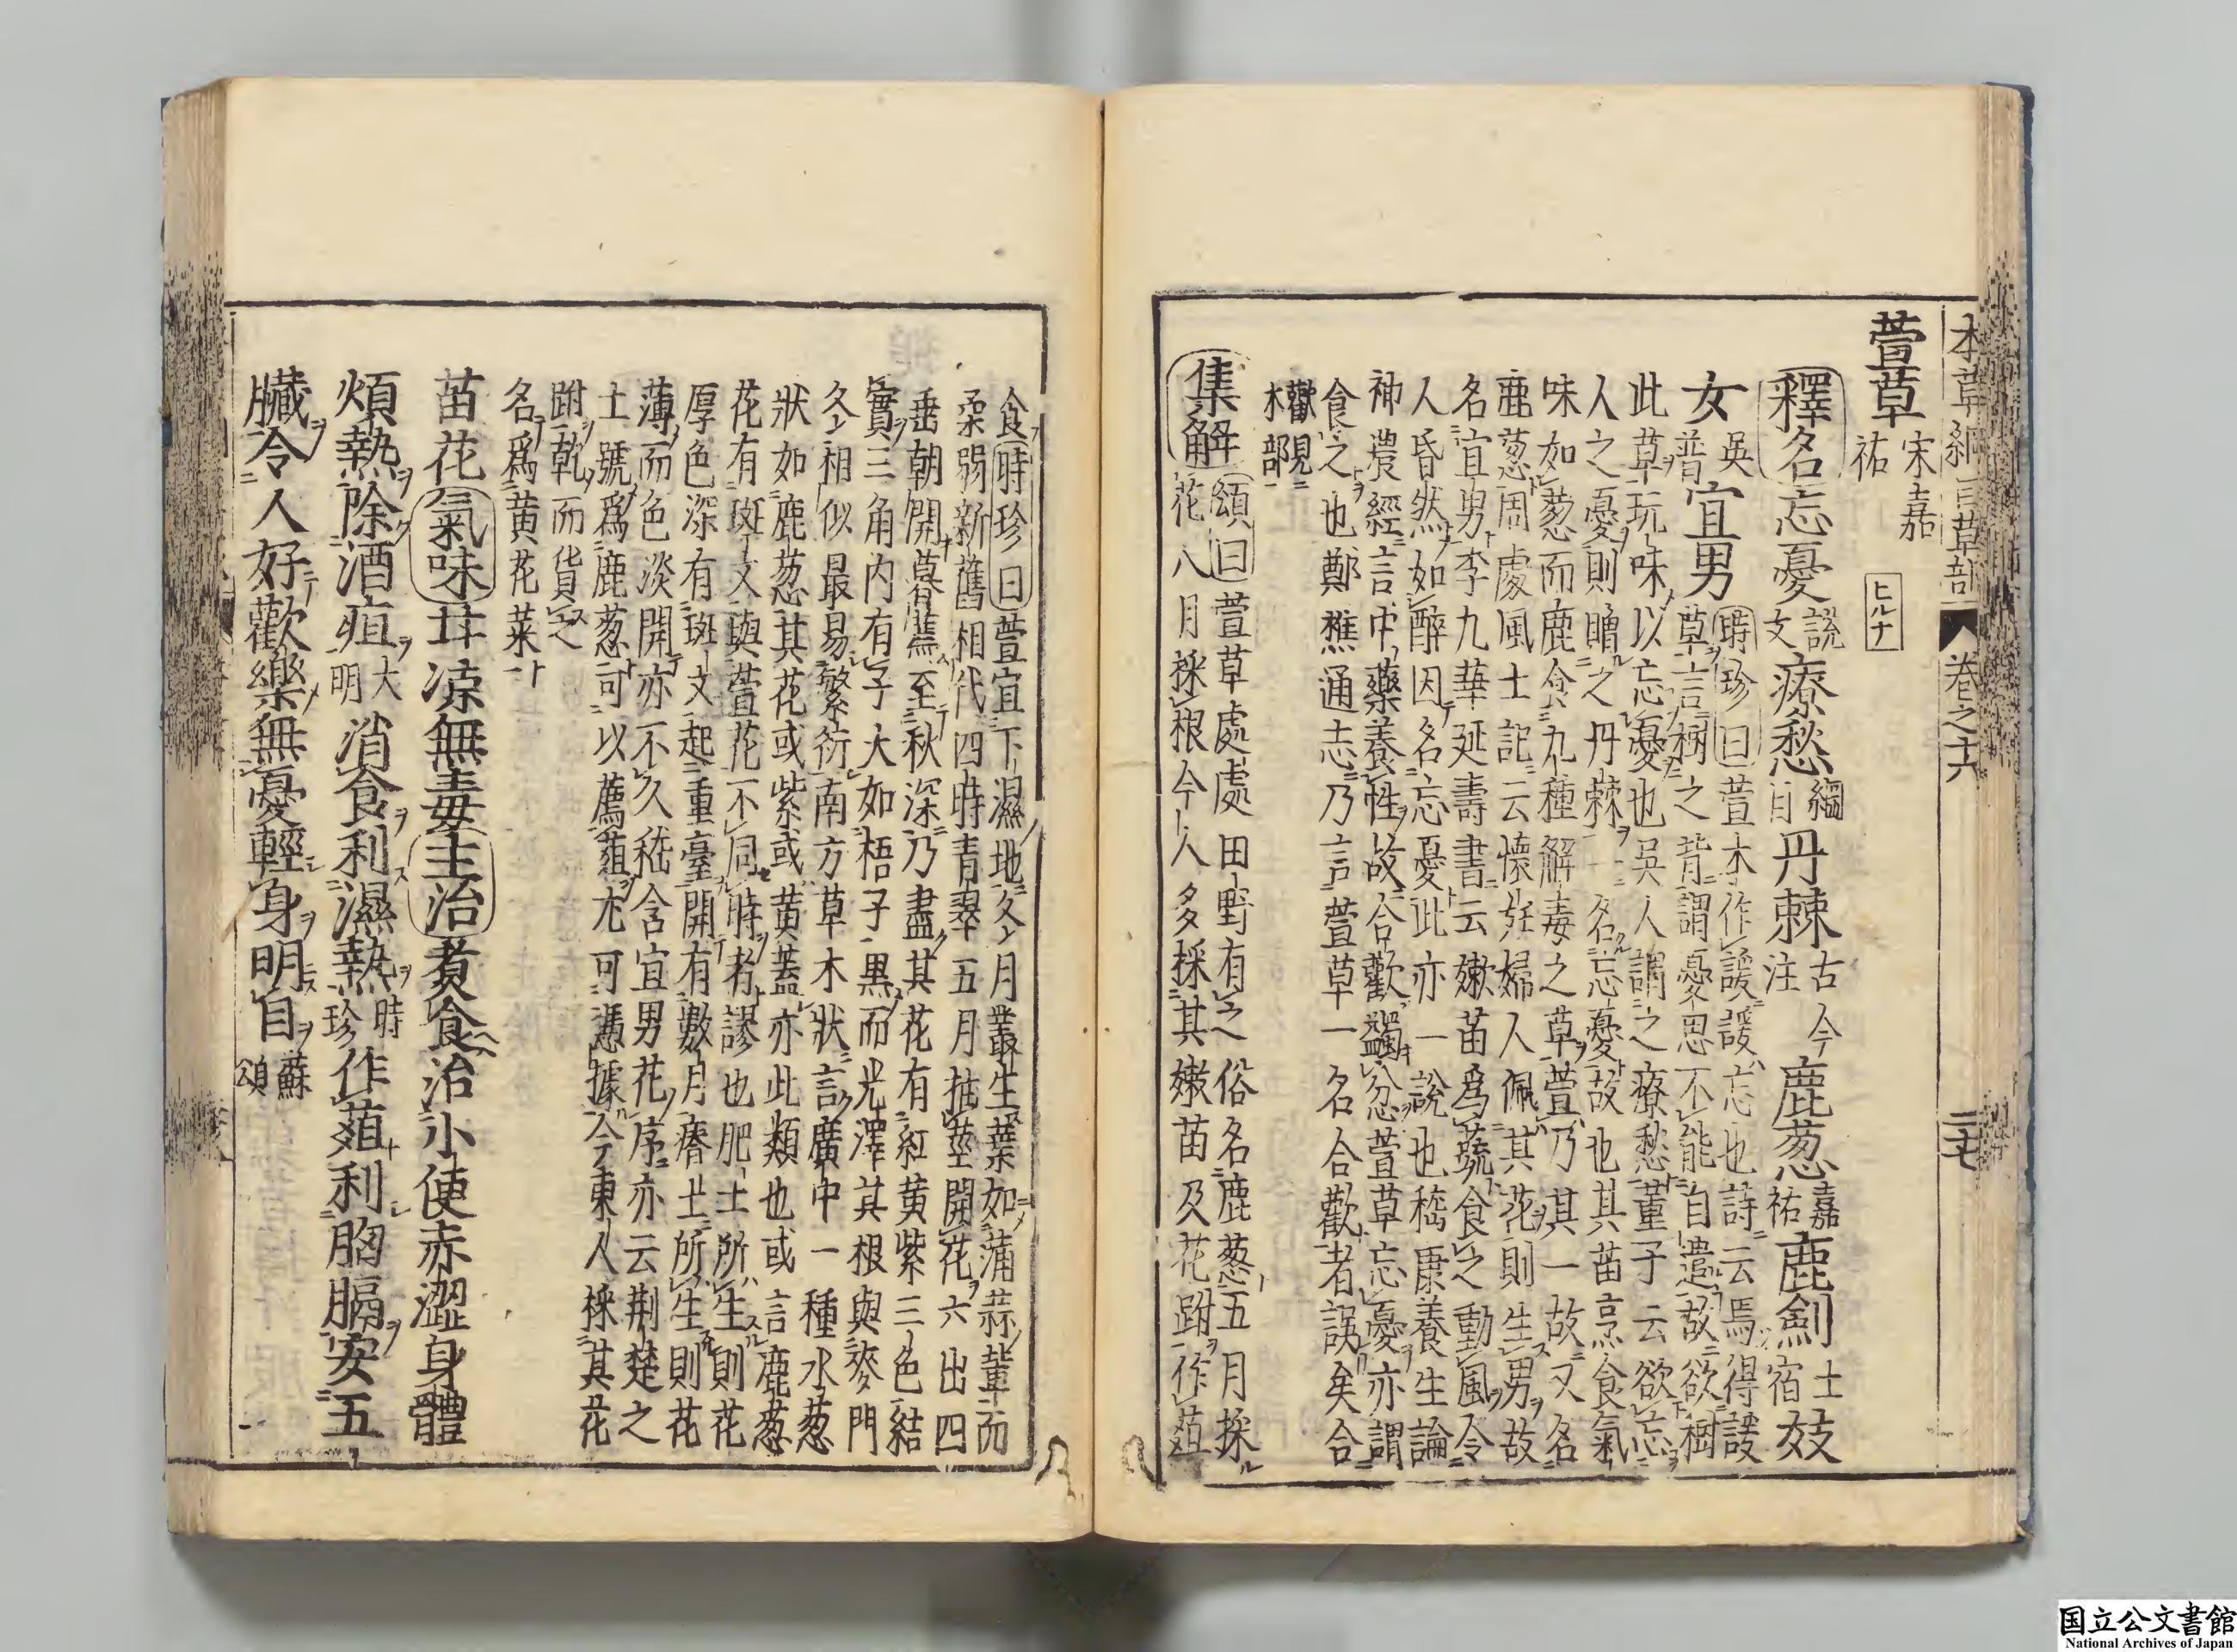 本草綱目草部 卷之十六 二七
萱草 宋嘉祐 ヒルナ
釋名 忘憂 說文 療愁 綱目 丹棘 古今注 鹿葱 嘉祐 鹿劍 土宿 妓
女 吳普 宜男 時珍曰萱本作諼諼忘也詩云焉得諼
草言樹之背謂憂思不能自遣故欲樹
此草玩味以忘憂也吳人謂之療愁董子云欲忘
人之憂則贈之丹棘一名忘憂故也其苗烹食氣
味如葱而鹿食九種解毒之草萱乃其一故又名
鹿葱周處風土記云懷妊婦人佩其花則生男故
名宜男李九華延壽書云嫩苗爲蔬食之動風令
人昏然如醉因名忘憂此亦一說也嵇康養生論
神農經言中藥養性故合歡蠲忿萱草忘憂亦謂
食之也鄭樵通志乃言萱草一名合歡者誤矣合
歡見木部
集解 頌曰萱草處處田野有之俗名鹿葱五月採
花八月採根今人多採其嫩苗及花跗作葅
食時珍曰萱宜下濕地冬月叢生葉如蒲蒜輩而
柔弱新舊相代四時青翠五月抽莖開花六出四
垂朝開暮蔫至秋深乃盡其花有紅黄紫三色結
實三角内有子大如梧子黒而光澤其根與麥門
冬相似最易繁衍南方草木狀言廣中一種水葱
狀如鹿葱其花或紫或黄蓋亦此類也或言鹿葱
花有斑文與萱花不同時者謬也肥土所生則花
厚色深有斑文起重臺開有數月瘠土所生則花
薄而色淡開亦不久嵇含宜男花序亦云荆楚之
土號爲鹿葱可以薦葅尤可憑據今東人採其花
跗乾而貨之
名爲黄花菜
苗花 氣味 甘凉無毒 主治 煮食治小便赤澀身體
煩熱除酒疸 大明 消食利濕熱 時珍 作葅利胸膈安五
臟令人好歡樂無憂輕身明目 蘇頌
国立公文書館
National Archives of Japan